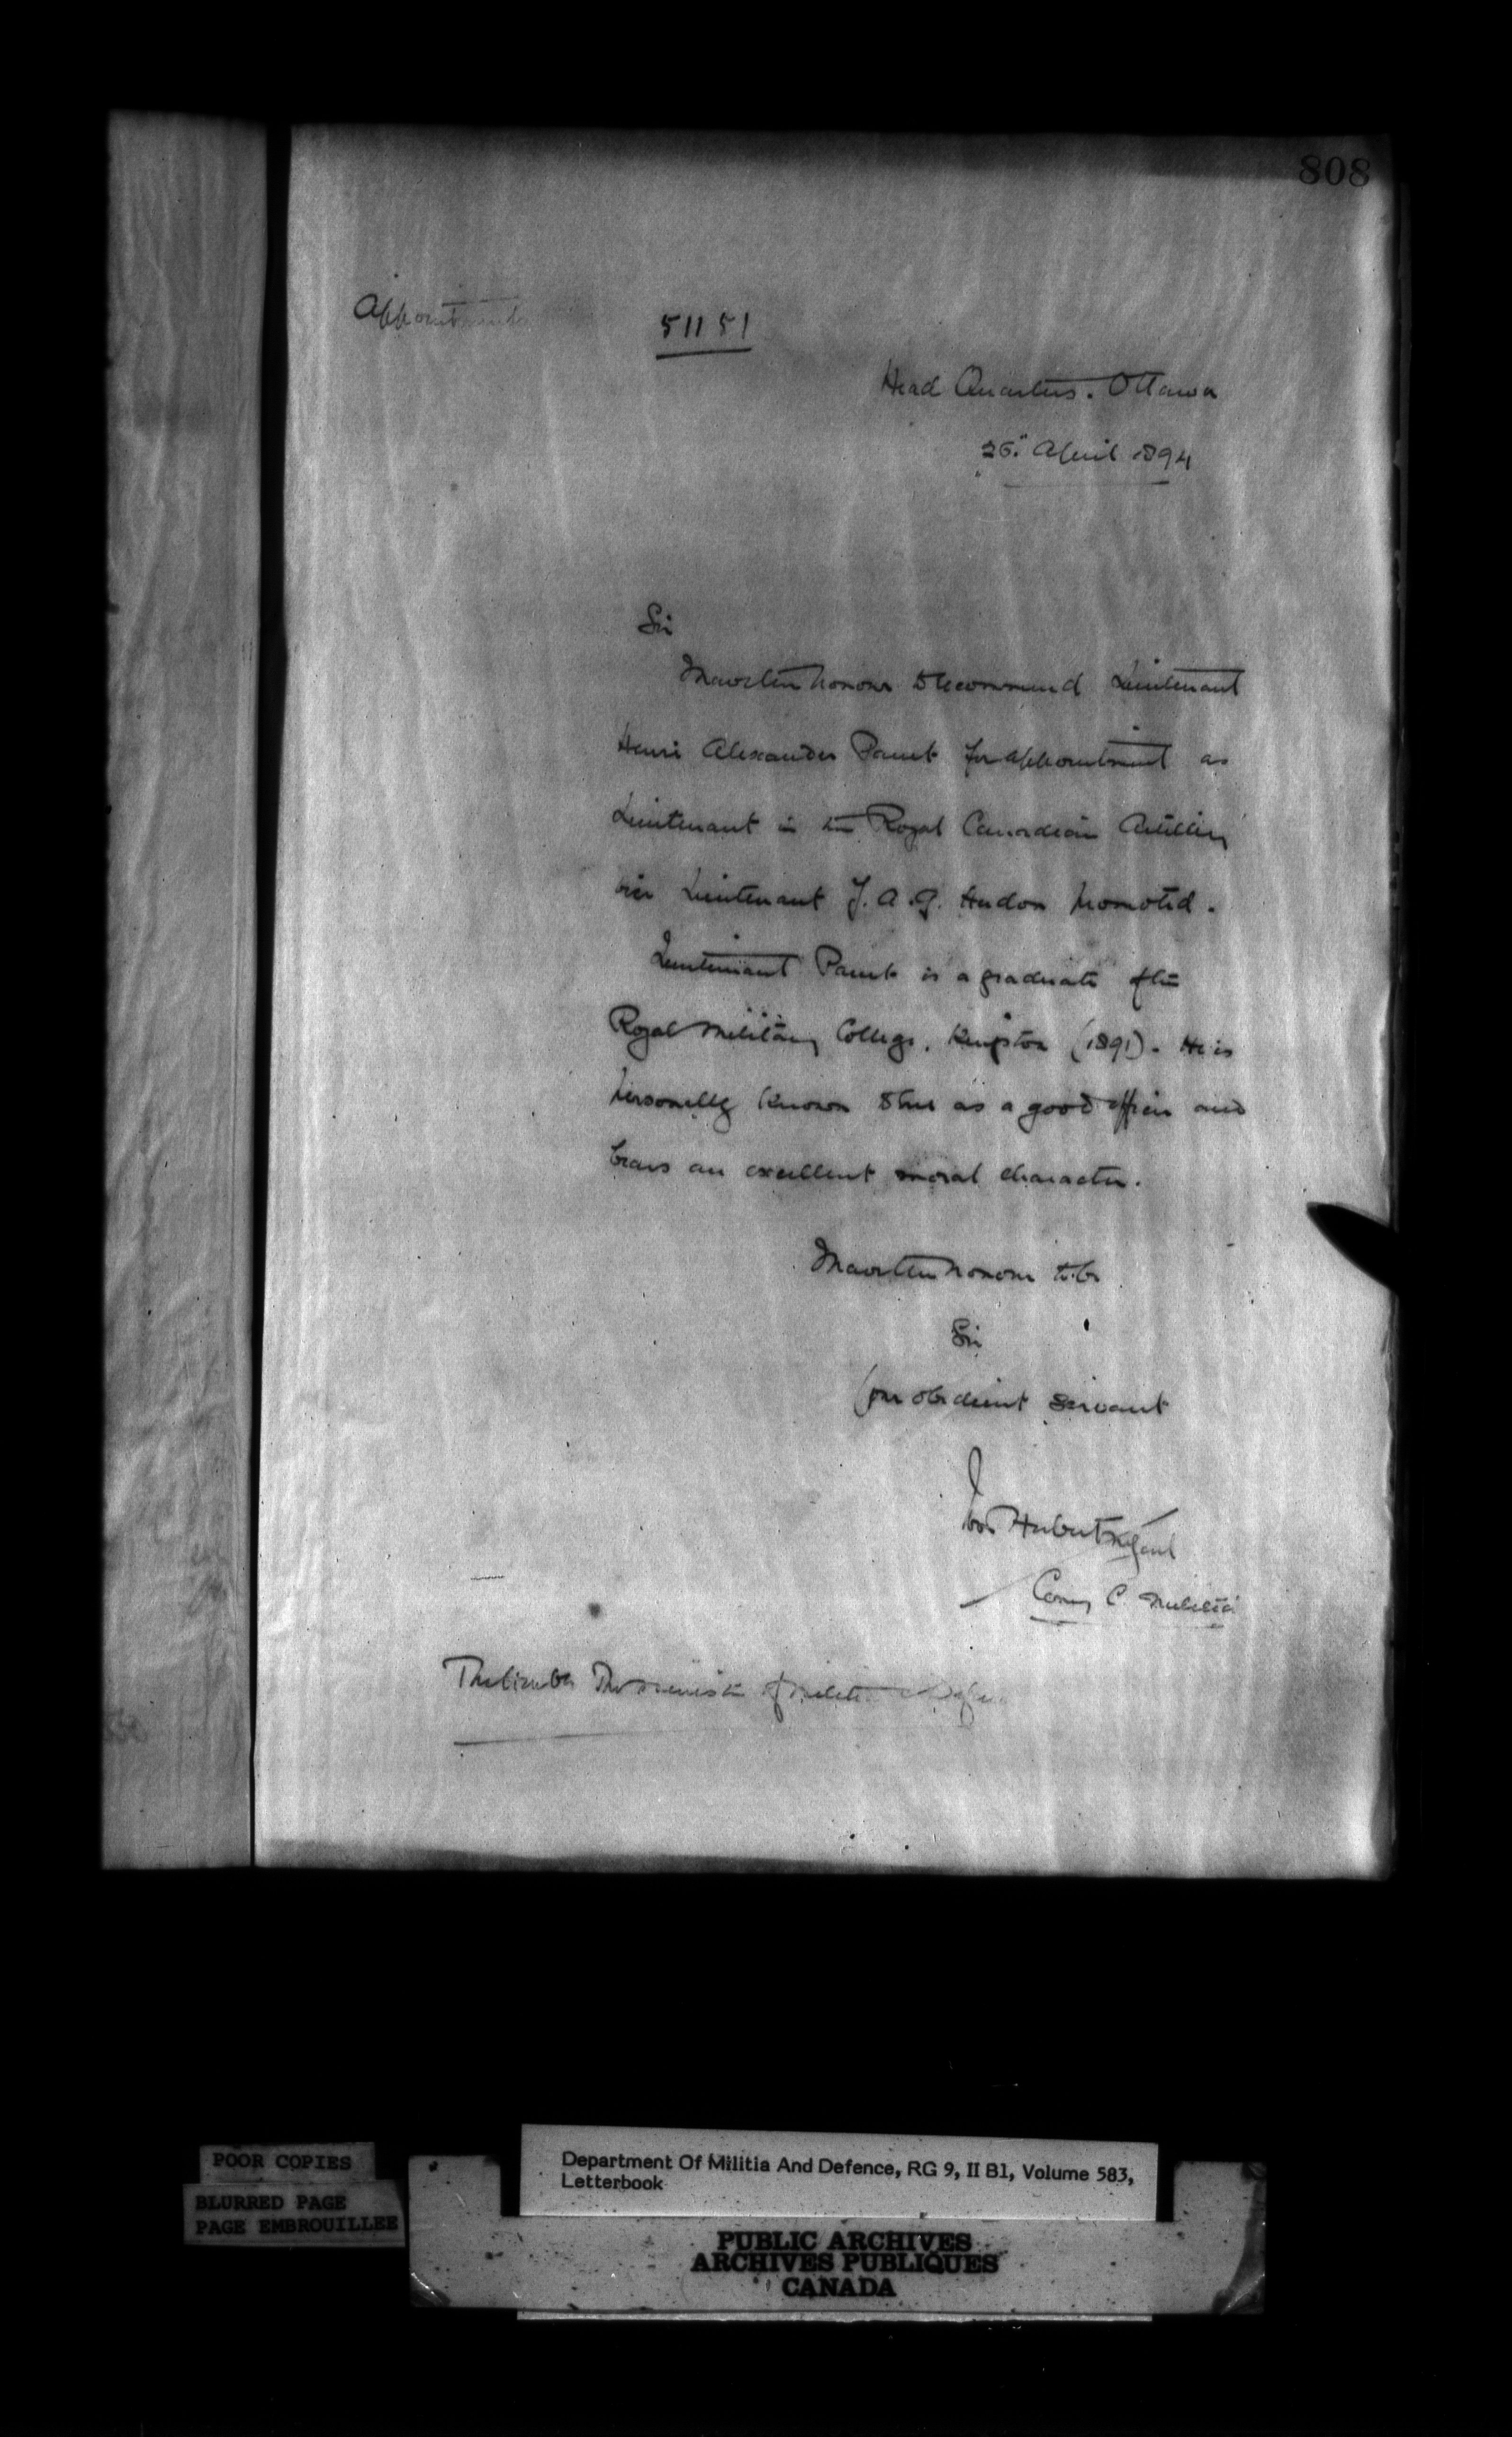 808
Appointments
51151
Head Quarters. Ottawa
26" April 1894
Sir
I have the honour to recommend Lieutenant
Henri Alexandre Panet for appointment as
Lieutenant in the Royal Canadian Artillery
vice Lieutenant J. A. G. Hudon promoted.
Lieutenant Panet is a graduate of the
Royal Military College, Kingston (1891). He is
personally known to me as a good officer and
bears an excellent moral character.
I have the honour to be
Sir
Your obedient servant
Ivor Herbert M Genl
Comg C. Militia
The Honble The Minister of Militia & Defence
POOR COPIES
BLURRED PAGE
PAGE EMBROUILLEE
Department Of Militia And Defence, RG 9, II B1, Volume 583,
Letterbook
PUBLIC ARCHIVES
ARCHIVES PUBLIQUES
CANADA